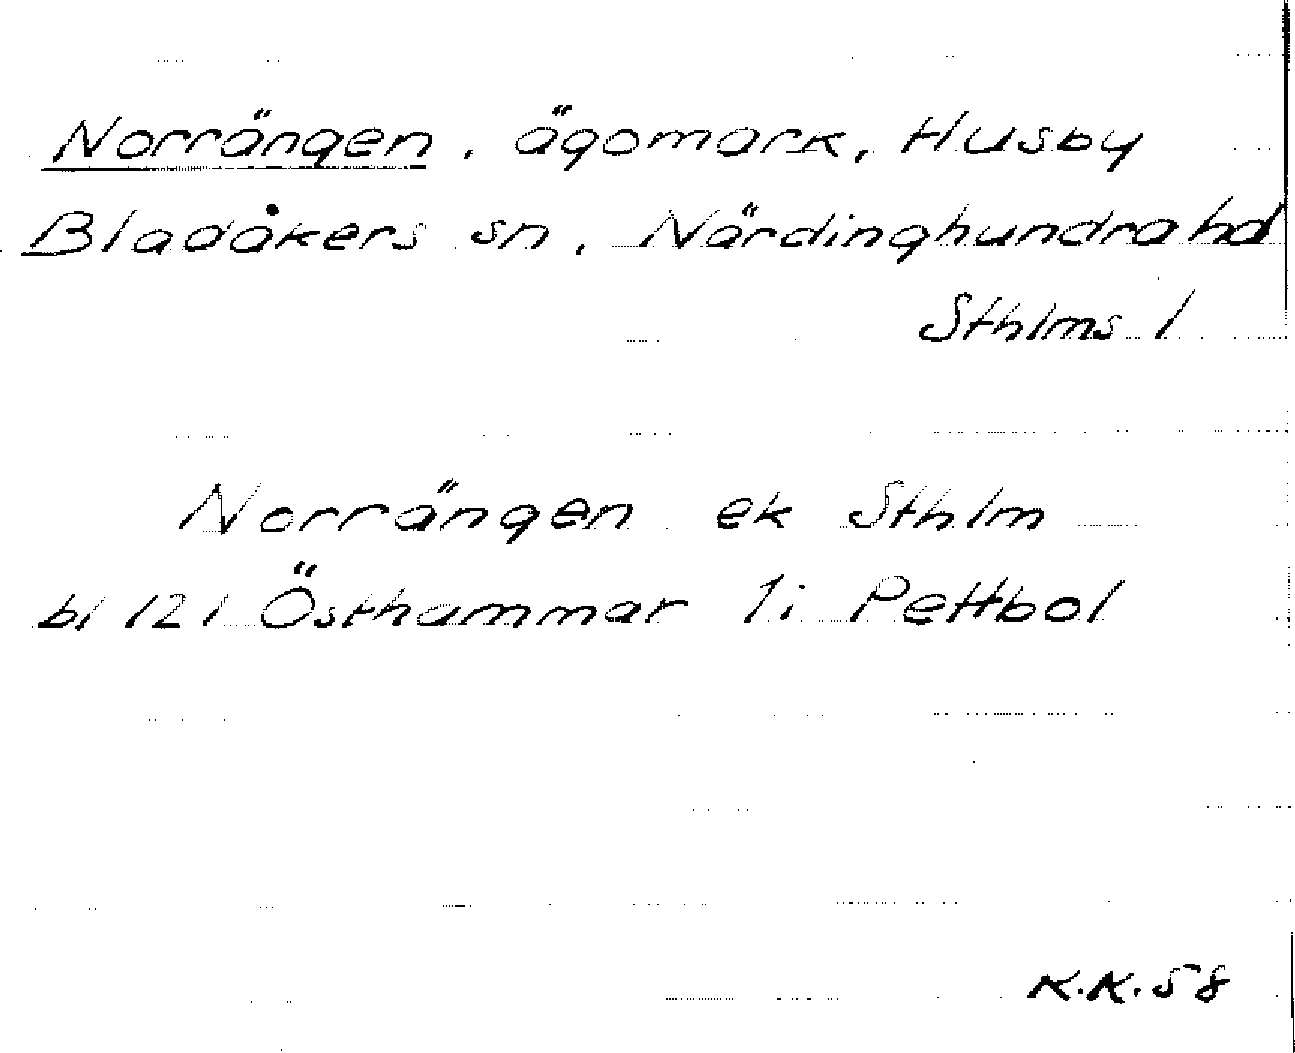 Norrängen, ägomark, Husby
Bladåkers sn, Närdinghundra hd
Sthlms l
Norrängen ek Sthlm
bl 121 Östhammar 1i Pettbol
K.K. 58